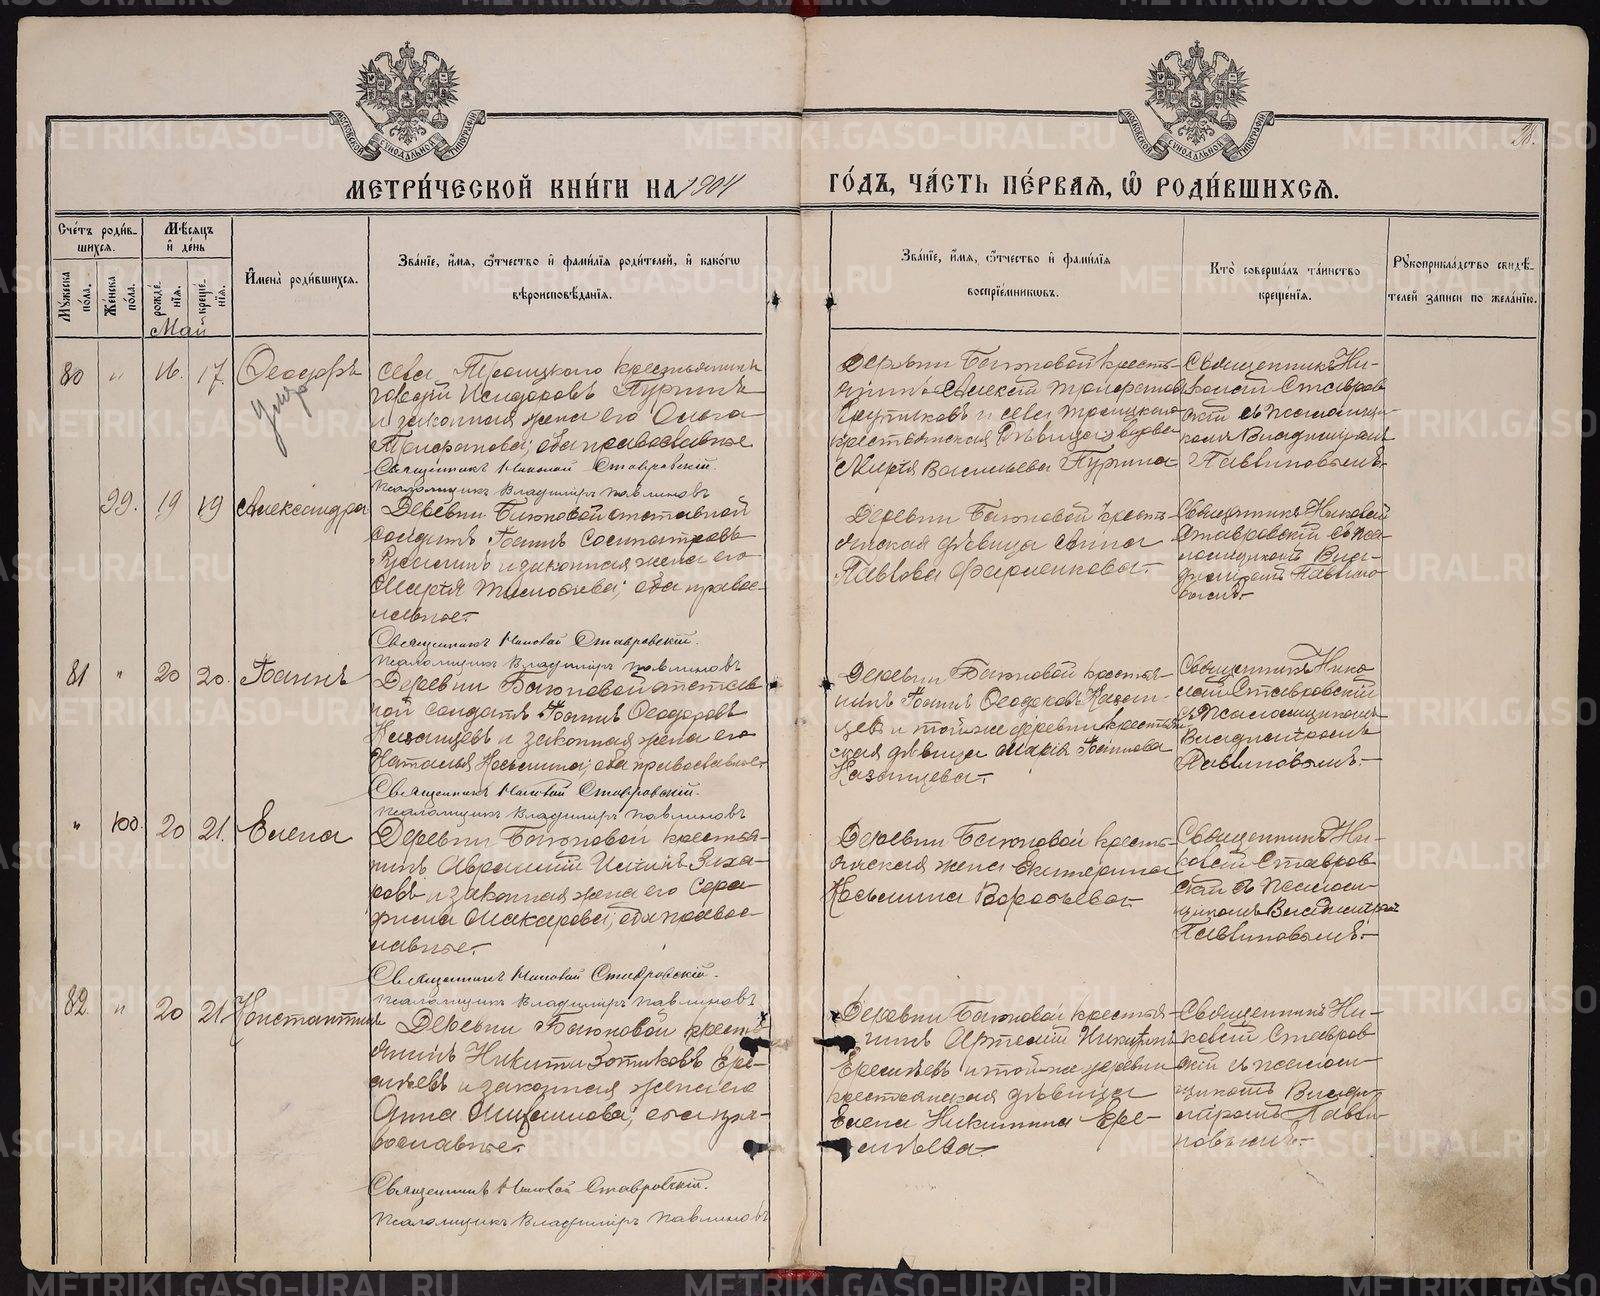 МЕТРИ́ЧЕСКОЙ КНИ́ГИ НА 1904 ГО́ДЪ, ЧА́СТЬ ПЕ́РВАЯ, Ѽ РОДИ́ВШИХСЯ.
МОСКОВСКОЙ СѴНОДАЛЬНОЙ ТИПОГРАФІИ
МОСКОВСКОЙ СѴНОДАЛЬНОЙ ТИПОГРАФІИ
Сче́тъ роди́в-
шихся.
Мꙋ́жеска по́ла.
Же́нска по́ла.
Мѣ́сяцъ и де́нь
рожде́нїя.
креще́нїя.
И҆мена̀ роди́вшихся.
Зва́нїе, и҆́мя, ѻ҆́тчество и҆ фами́лїя роди́телей, и҆ како́гѡ
вѣроисповѣ́данїя.
Зва́нїе, и҆́мя, ѻ҆́тчество и҆ фами́лїя
воспрїе́мникѡвъ.
Кто̀ соверша́лъ та́инство
креще́нїя.
Рꙋкоприкла́дство свидѣ́-
телей записи по жела́нїю.
Май
80 " 16. 17. Ѳеодоръ
умер
села Троицкого крестьянинъ
Исидоровъ Пургинъ
и законная жена его Ольга
Трифанова; оба православные
Священникъ Николай Ставровскій.
Псаломщикъ Владиміръ Павлиновъ
Деревни Баиновой кресть-
янинъ Алексій Трифановъ
и села Троицкого
крестьянская
Марія Васильева Пургина
Священникъ Ни-
колай Ставров-
скій съ псаломщи-
комъ Владиміромъ
Павлиновымъ.
99. 19 19 Александра
Деревни Баиновой отставной
солдатъ Іоаннъ Сосипатровъ
и законная жена его
Марія Тимофеева; оба право-
славные.
Священникъ Николай Ставровскій.
Псаломщикъ Владиміръ Павлиновъ
Деревни Баиновой кресть-
янская дѣвица Анна
Павлова
Священникъ Николай
Ставровскій съ пса-
ломщикомъ Вла-
диміромъ Павлино-
вымъ.
81 " 20 20. Іоаннъ
Деревни Баиновой отстав-
ной солдатъ Іоаннъ Ѳеодоровъ
Казанцевъ и законная жена его
Наталья Косьмина; оба православные.
Священникъ Николай Ставровскій.
Псаломщикъ Владиміръ Павлиновъ
Деревни Баиновой крестья-
нинъ Іоаннъ Ѳеодоровъ Казан-
цевъ и той-же деревни крестьян-
ская дѣвица Марія Іоаннова
Казанцева.
Священникъ Нико-
лай Ставровскій
съ псаломщикомъ
Владиміромъ
Павлиновымъ.
" 100. 20 21. Елена
Деревни Баиновой крестья-
нинъ Авраамій Исаинъ Заха-
ровъ и законная жена его Сера-
фима Макарова; оба право-
славные.
Священникъ Николай Ставровскій.
Псаломщикъ Владиміръ Павлиновъ
Деревни Баиновой кресть-
янская жена Екатерина
Косьмина Воробьева.
Священникъ Ни-
колай Ставров-
скій съ псалом-
щикомъ Владиміромъ
Павлиновымъ.
82. " 20 21. Константинъ
Деревни Баиновой кресть-
янинъ Никита Зотиковъ Ере-
мѣевъ и законная жена его
Анна оба пра-
вославные.
Священникъ Николай Ставровскій.
Псаломщикъ Владиміръ Павлиновъ
Деревни Баиновой крестья-
нинъ Артемій Никитинъ
и той-же деревни
крестьянская дѣвица
Елена Никитина Ере-
мѣева.
Священникъ Ни-
колай Ставров-
скій съ псалом-
щикомъ Влади-
міромъ Павли-
новымъ.
METRIKI.GASO-URAL.RU